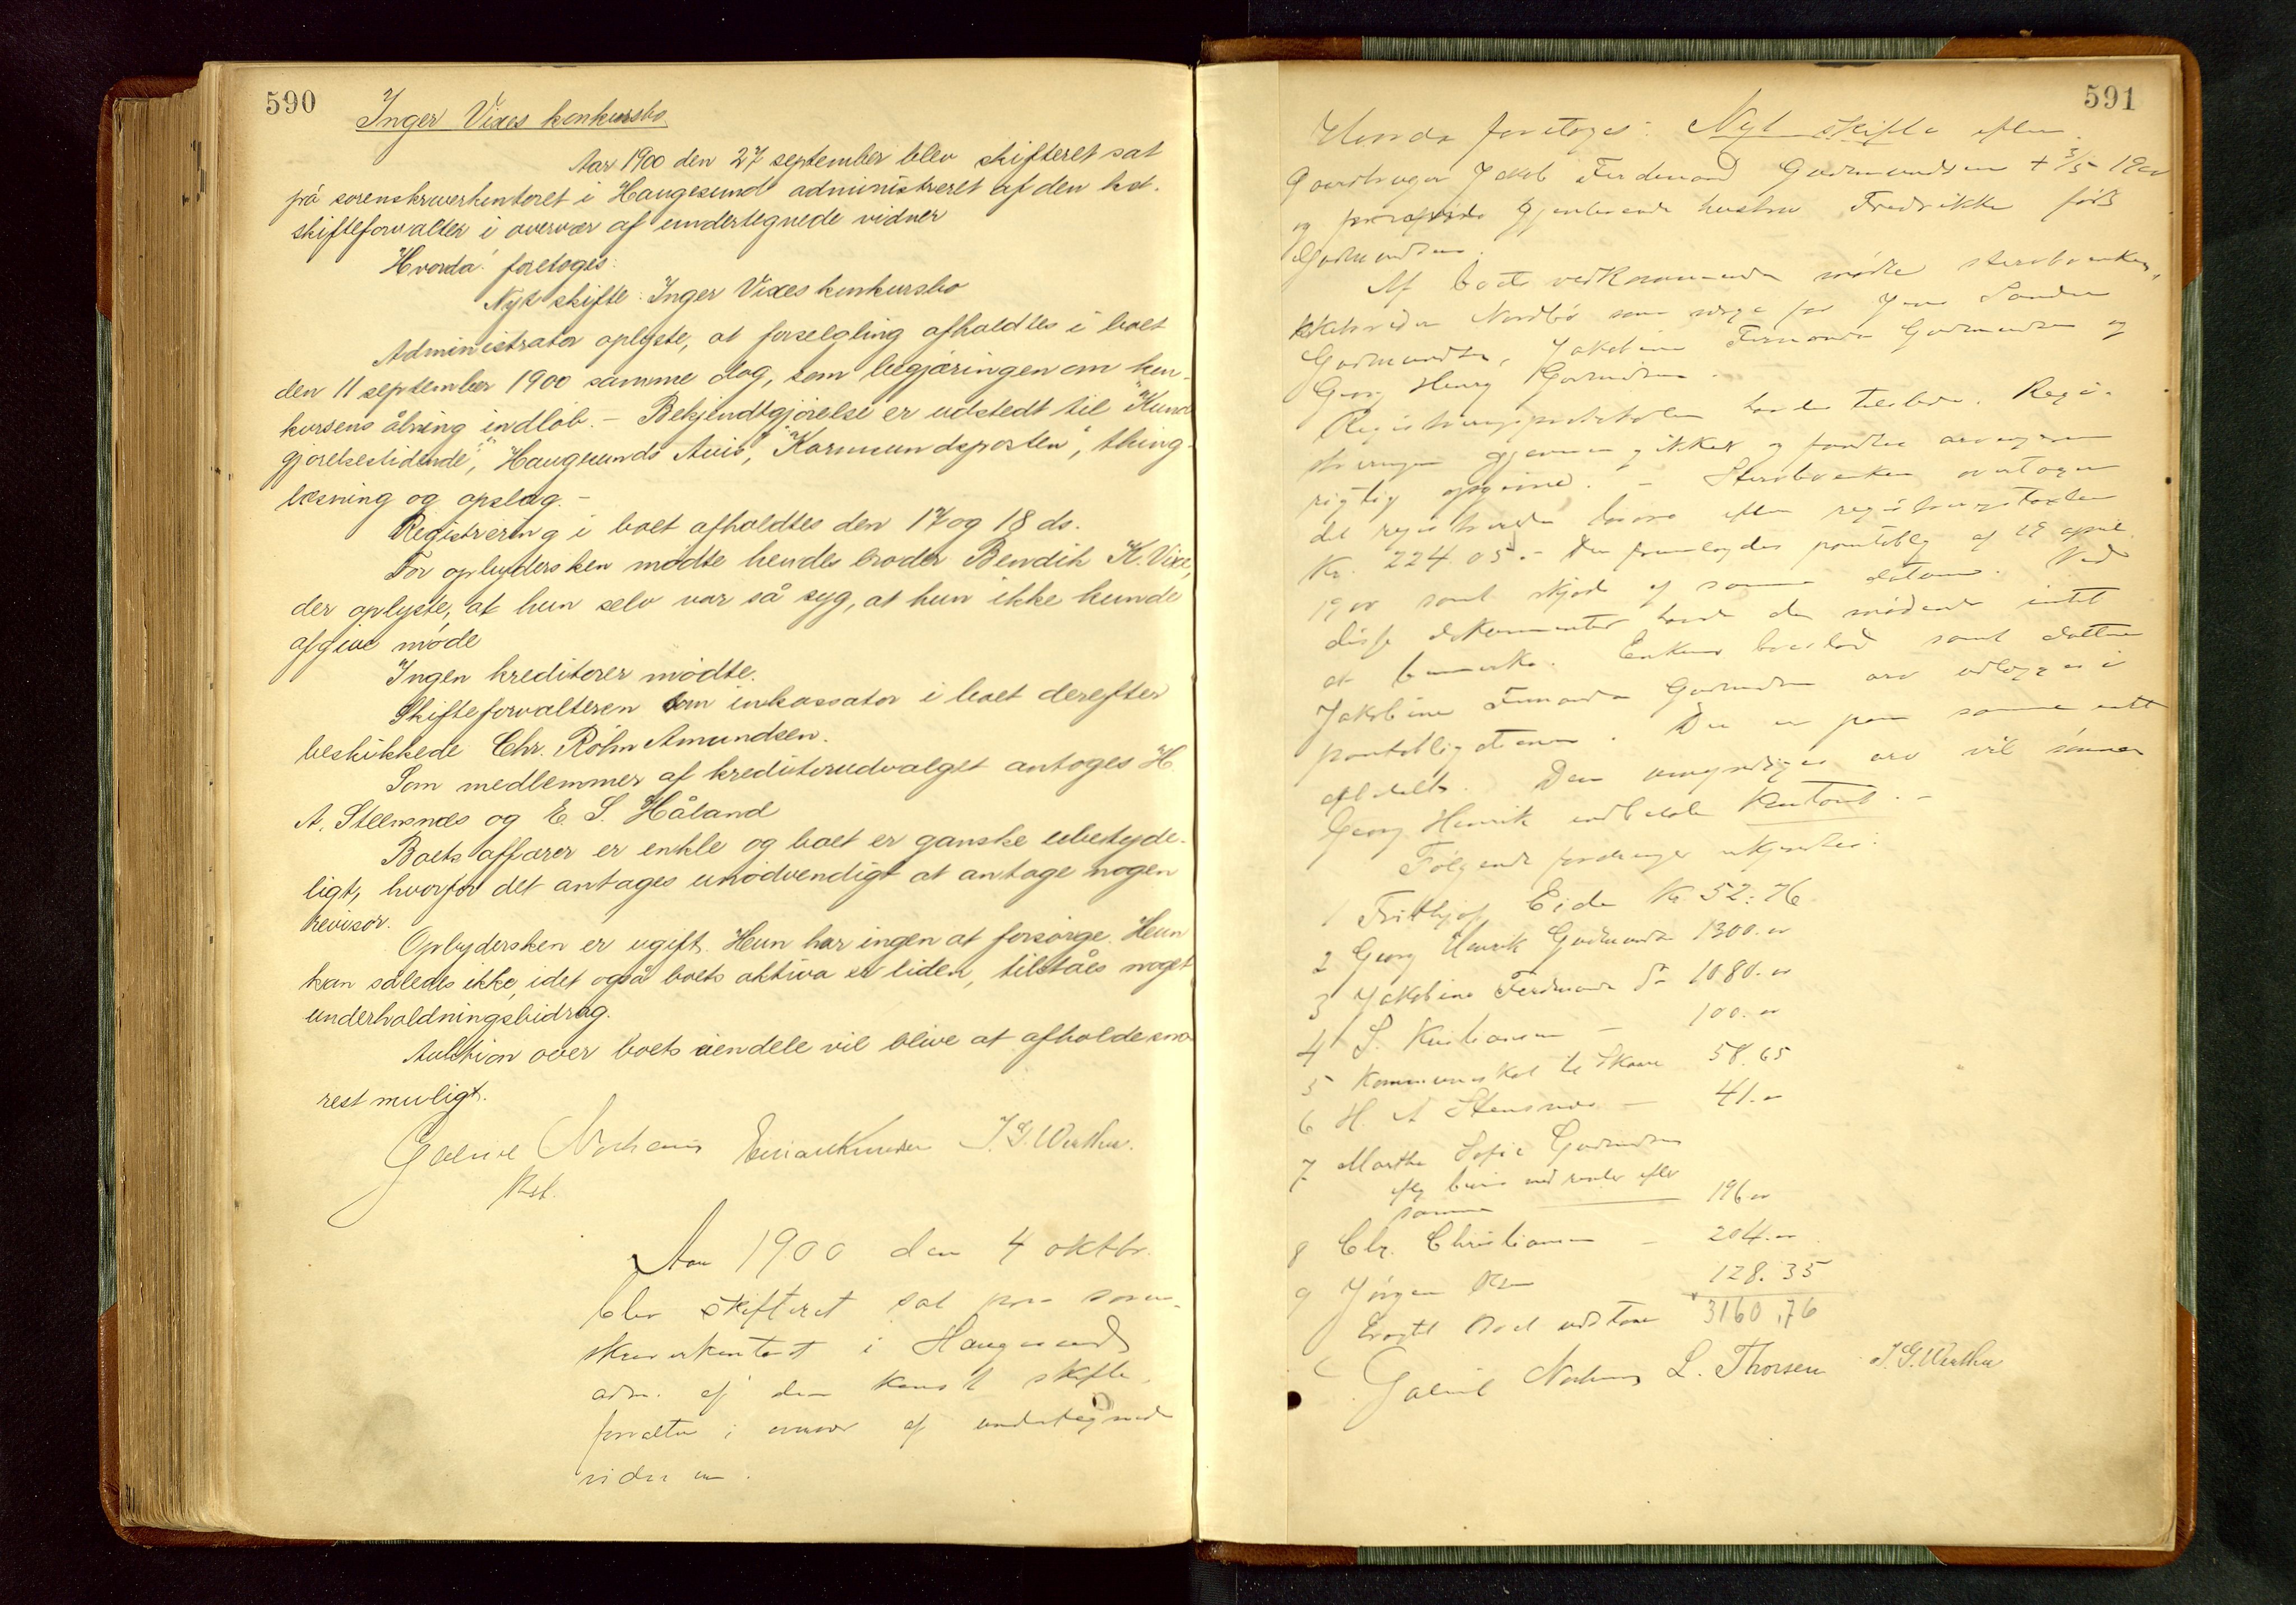 590
Inger Vixes konkursbo
Aar 1900 den 27 september blev skifteret sat
på sorenskriverkontoret i Haugesund administreret af den kst.
skifteforvalter i overvær af undertegnede vidner
Hvorda! foretoges:
Nyt skifte: Inger Vixes konkursbo
Administrator oplyste, at forselgling afholdtes i boet
den 11 september 1900 samme dag, som begjæringen om kon-
kursens åbning indløb. - Bekjendtgjørelse er udstedt til "Kund
gjørelsestidende", "Haugesunds Avis", "Karmsundsposten", thing-
læsning og opslag. -
Registrering i boet afholdtes den 17 og 18 ds.
For opbydersken mødte hendes broder Bendik K. Vixe,
der oplyste, at hun selv var så syg, at hun ikke kunde
afgive møde
Ingen kreditorer mødte.
Skifteforvalteren som inkassator i boet derefter
beskikkede Chr. Røhn Amundsen.
Som medlemmer af kreditorudvalget antoges H.
A. Stensnæs og E. S. Håland
Boets affærer er enkle og boet er ganske ubetyde-
ligt, hvorfor det antages unødvendigt at antage nogen
revisor.
Opbydersken er ugift. Hun har ingen at forsørge. Hun
kan således ikke, idet også boets aktiva er liden, tilståes noget
underholdningsbidrag.
Auktion over boets eiendele vil blive at afholde sna-
rest muligt.
Einar Knudsen J. G. Werther.
Kst.
Aar 1900 den 4 oktbr.
blev skifteret sat paa soren-
skriverkontoret i Haugesund
adm. af den konst skifte-
forvalter i overvær af undertegnede
vidner.
591
Hvorda foretoges: Nyt skifte efter
Gaardbruger Jakob Ferdinand Gudmundsen + 3/5 1900
og gjenlevende hustru Fredrikke født
Gudmundsen.
Af boets vedkommende mødte stervboenken,
Nordbø som værge for Jens Sander
Gudmundsen, Jakobine Fernanda Gudmundsen og
Georg Henry Gudmundsen.
Registreringsprotokollen havdes tilstede. Regi-
streringen gjennemgikkes og fandtes
rigtig opgivne. - Stervboenken overtager
det registrerede løsøre efter registreringstaxten
Kr. 224.05. - Der fremlagdes pantoblg af 19 april
1900 samt skjøde af samme datum. Ved
disse dokumenter havde de mødende intet
at bemærke. Enkens boeslod samt datteren
Jakobine Fernanda Gudmundsen arv udlægges i
pantobligationen. Der er paa samme intet
afbetalt. Den arv vil sønnen
Georg Henrik indbetale kontant. -
Følgende fordringer vedkjendtes:
1 Frithjof Eide Kr. 52.76
2 Georg Henrik Gudmundsen 1300.00
3 Jakobine Ferdinande do 1080.00
4 S. Kristiansen - 100.00
5 Kommuneskat til Skaare 58.65
6 H. A Stensnæs - 41.00
7 Martha Sofie Gudmundsen
iflg bevis med renter efter
samme 196.00
8 Chr. Christiansen - 204.00
9 Jørgen Olsen 128.35
3160.76
L. Thorsen J. G. Werther